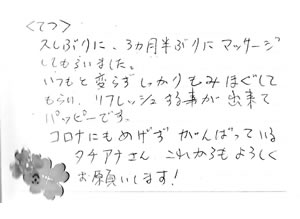 <てつ>
久しぶりに、3カ月半ぶりに マッサージ
してもらいました。
いつもと変らず しっかりもみほぐして
もらい、リフレッシュする事が出来て
ハッピーです。
コロナにもめげず がんばっている
タチアナさん これからもよろしく
お願いします!